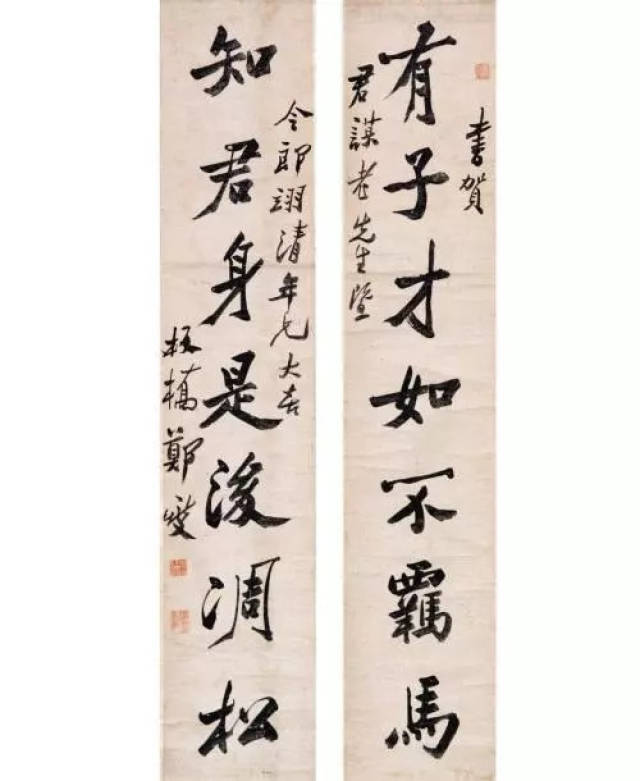 書賀
有子才如不羈馬
君謀老先生暨
令郎翊清年兄大
知君身是後凋松
板橋鄭燮